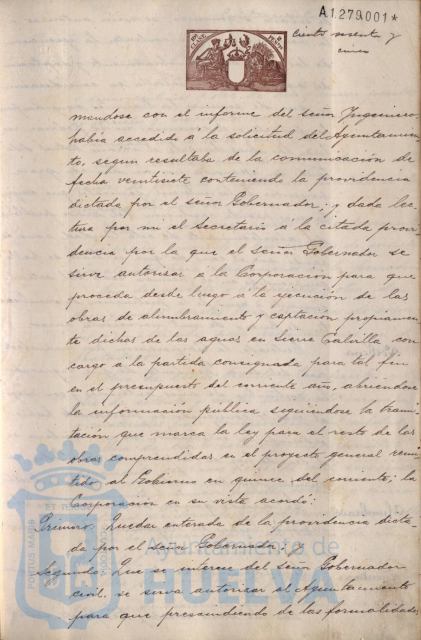 A1.279.001*
ciento sesenta y
cinco
mándose con el informe del señor Ingeniero,
había accedido á la solicitud del Ayuntamien-
to, segun resultaba de la comunicación de
fecha veintisiete conteniendo la providencia
dictada por el señor Gobernador; y dada lec-
tura por mi el Secretario á la citada provi-
dencia por la que el señor Gobernador se
sirve autorizar á la Corporación para que
proceda desde luego á la ejecución de las
obras de alumbramiento y captación propiamen-
te dichas de las aguas en Sierra Calvilla con
cargo á la partida consignada para tal fin
en el presupuesto del corriente año, abriendose
la información pública siguiéndose la trami-
tación que marca la ley para el resto de las
obras comprendidas en el proyecto general remi-
tido al Gobierno en quince del corriente; la
Corporación en su vista acordó:
Primero: Quedar enterada de la providencia dicta-
da por el señor Gobernador.
Segundo: Que se interese del Señor Gobernador
civil se sirva autorizar al Ayuntamiento
para que prescindiendo de las formalidades
Ayuntamiento de
HUELVA
PORTUS MARIS
ET TERRAE
CUSTODIA